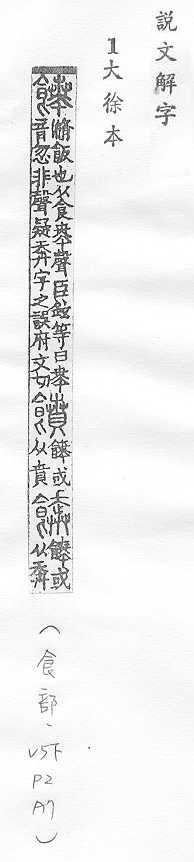 說文解字
1大徐本
䭲滫飯也从食𠦪聲臣鉉等曰𠦪音忽非聲疑奔字之誤府文切饙䭲或从賁餴䭲或从奔
(食部、V5下 P2 A7)